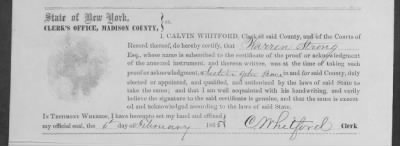 State of New York,
CLERK'S OFFICE, MADISON COUNTY, } ss.
I, CALVIN WHITFORD, Clerk of said County, and of the Courts of
Record thereof, do hereby certify, that Warren Strong
Esq., whose name is subscribed to the certificate of the proof or acknowledgment
of the annexed instrument, and thereon written, was at the time of taking such
proof or acknowledgment, a Justice of the Peace in and for said County, duly
elected or appointed, and qualified, and authorized by the laws of said State to
take the same; and that I am well acquainted with his handwriting, and verily
believe the signature to the said certificate is genuine, and that the same is execut-
ed and acknowledged according to the laws of said State.
IN TESTIMONY WHEREOF, I have hereunto set my hand and affixed
my official seal, the 6th day of February 185
C Whitford Clerk